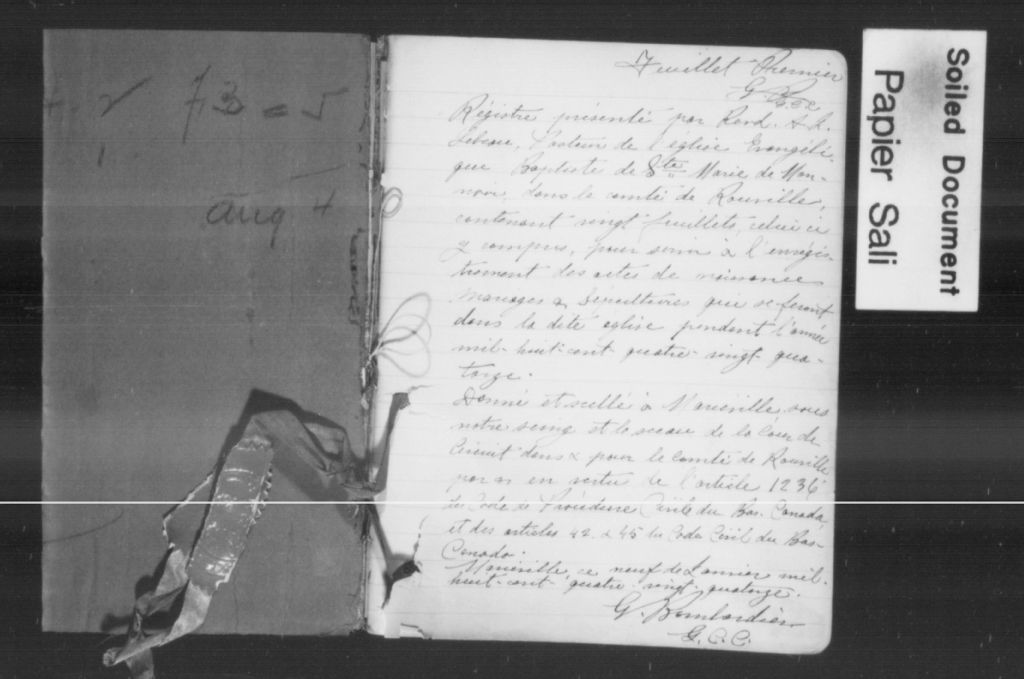 73 = 5
aug 4
Feuillet Premier
G. B. G.C.C.
Régistre présenté par Revd. A. L.
Lebeau, Pasteur de l'église Evangéli-
que Baptiste de Ste Marie de Mon-
noir, dans le comté de Rouville,
contenant vingt feuillets, celui ci
y compris, pour servir à l'enrégis-
trement des actes de naissances
Mariages & Sépultures qui se feront
dans la dite église pendant l'année
mil-huit-cent-quatre-vingt-qua-
torze.
Donné et scellé à Marieville, sous
notre seing et le sceau de la Cour de
Circuit dans & pour le Comté de Rouville
par et en vertu de l'article 1236
du Code de Procédure Civile du Bas-Canada,
et des articles 42 & 45 du Code Civil du Bas-
Canada.
Marieville, ce neuf de Janvier mil-
huit-cent-quatre-vingt-quatorze.
G. Bombardier
G.C.C.
Soiled Document
Papier Sali